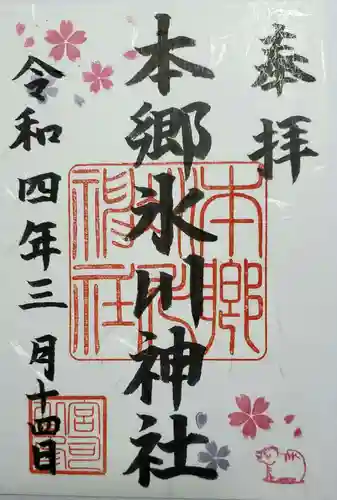 奉拝
本郷氷川神社
令和四年三月十四日
本郷氷川神社